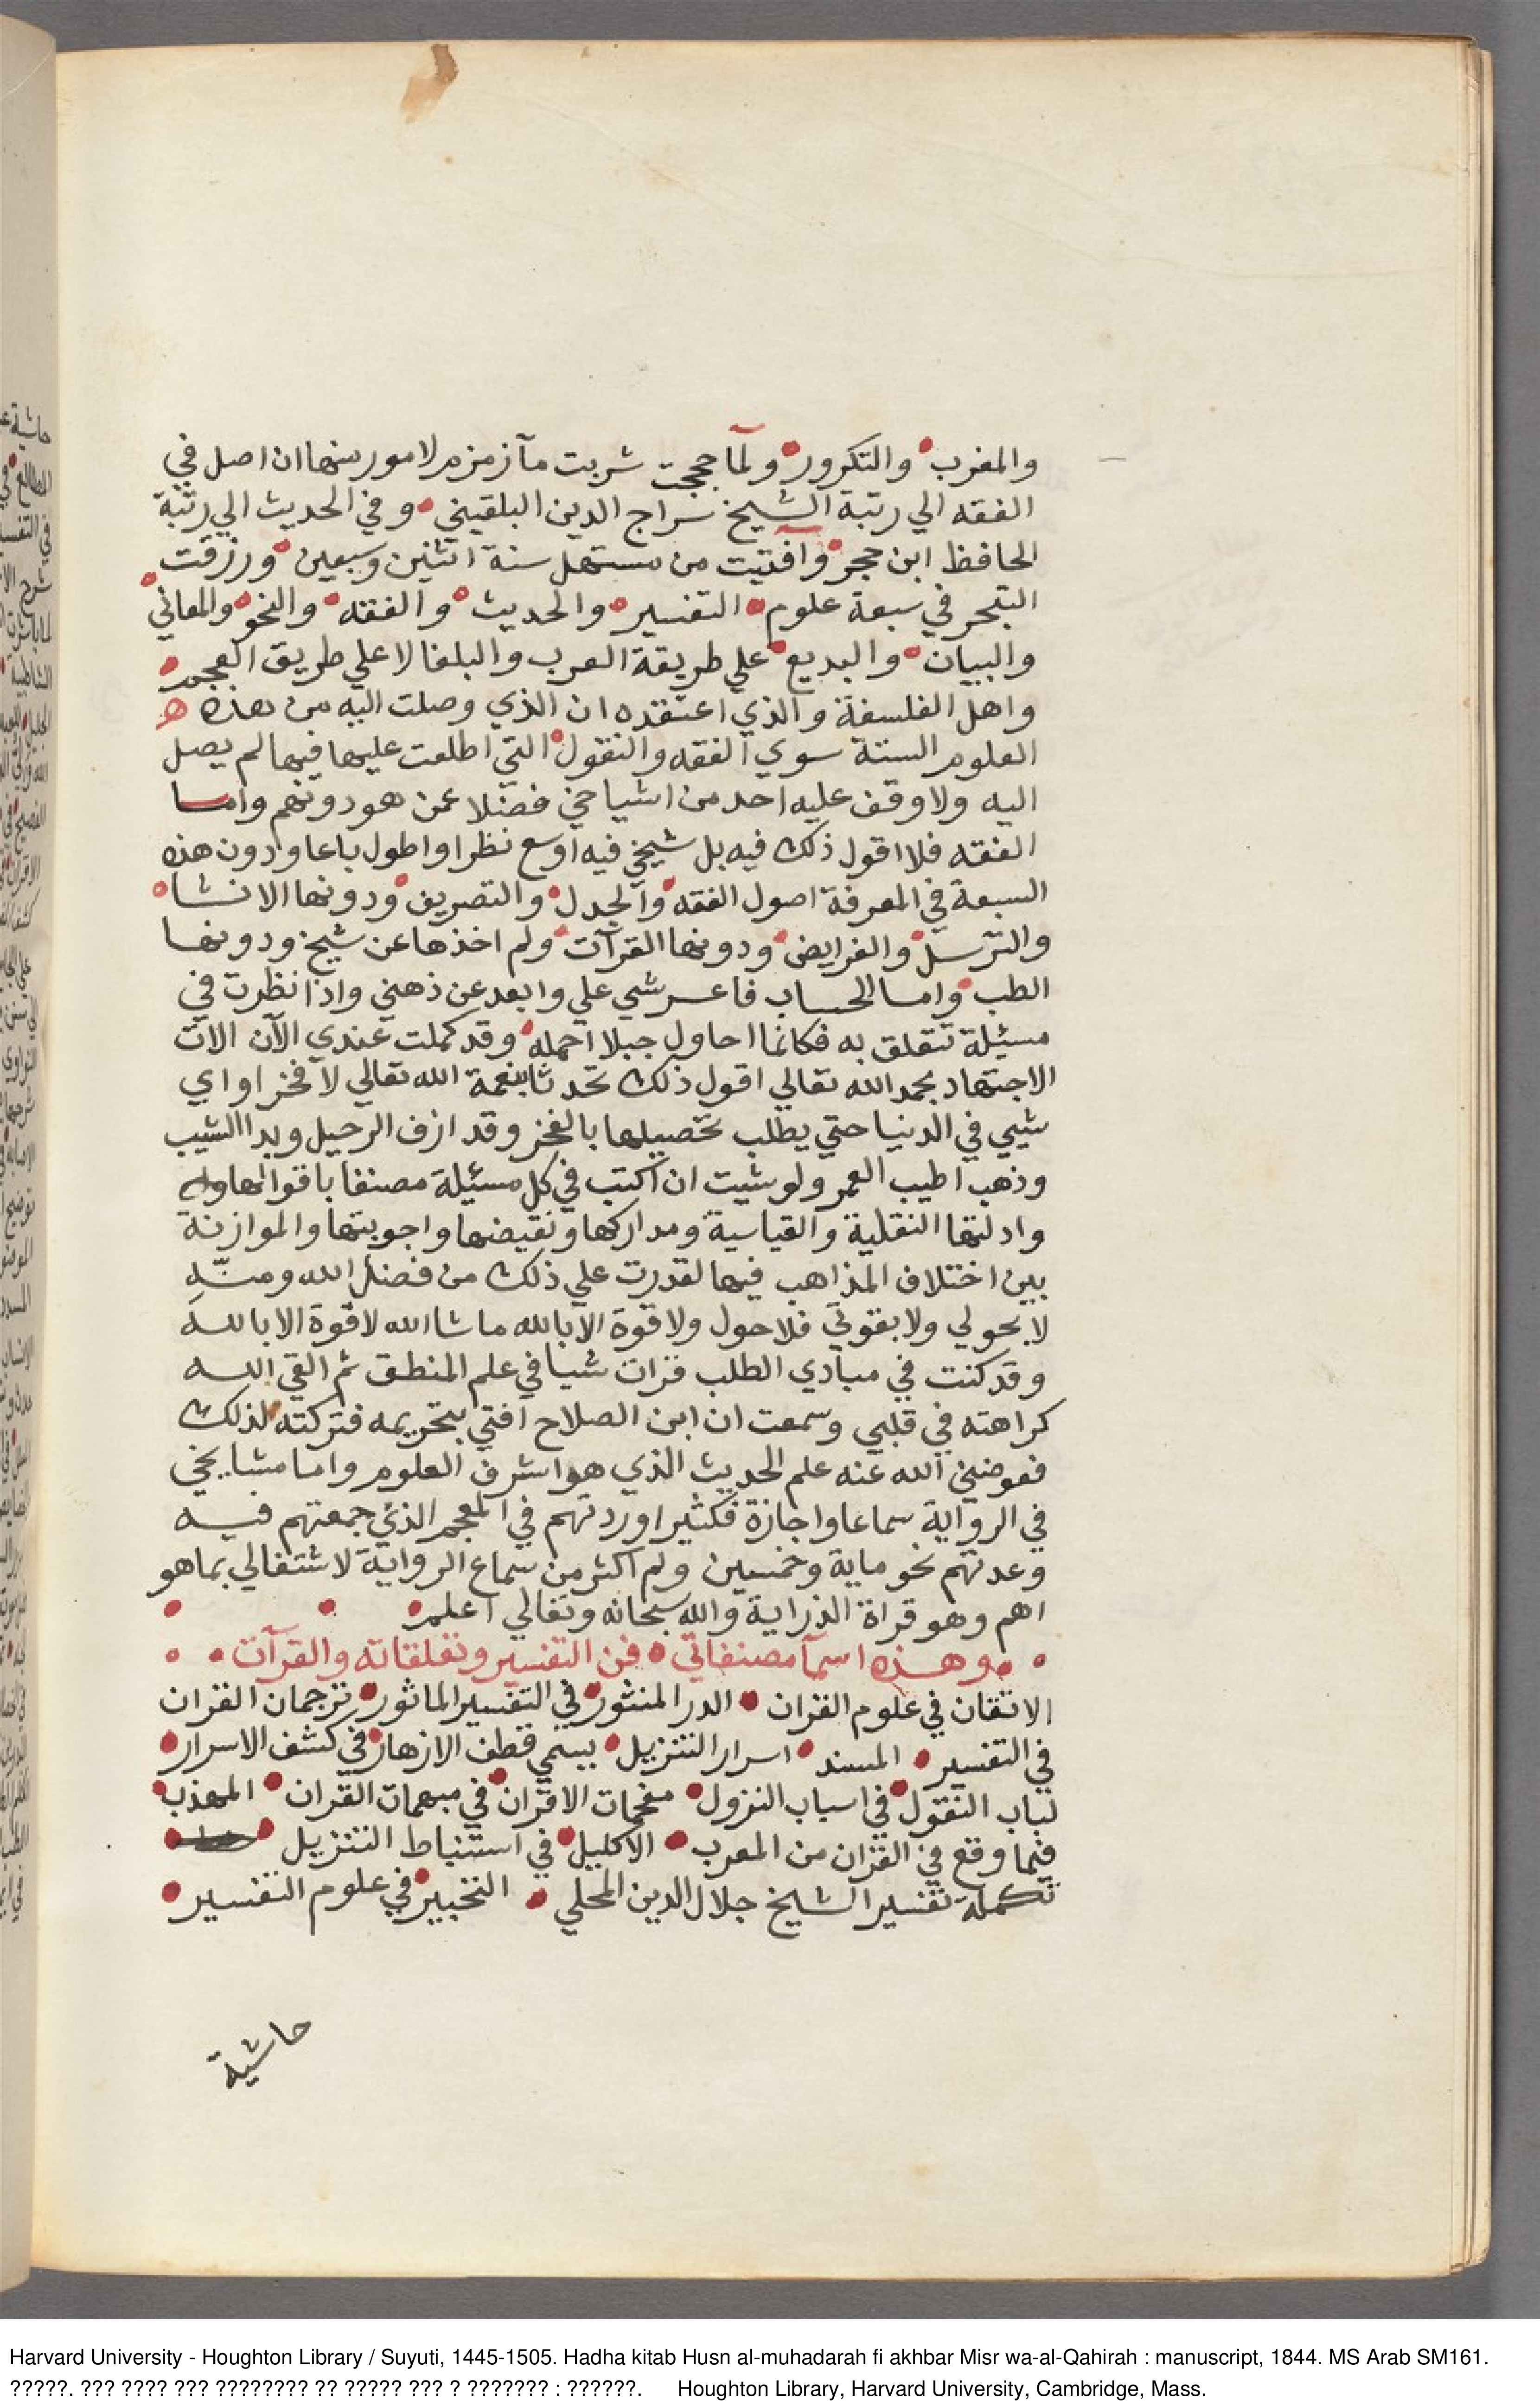 والمغرب والتكرور ولمآ حججت شربت مآ زمزم لامور منها ان اصل في
الفقه الي رتبة الشيخ سراج الدين البلقيني وفي الحديث الي رتبة
الحافظ ابن حجر وآفتيت من مستهل سنة اثنين وسبعين ورزقت
التبحر في سبعة علوم التفسير والحديث والفقه والنحو والمعاني
والبيان والبديع علي طريقة العرب والبلغا لا علي طريق العجم
واهل الفلسفة والذي اعتقده ان الذي وصلت اليه من هذه ه
العلوم الستة سوي الفقه والنقول التي اطلعت عليها فيها لم يصل
اليه ولا وقف عليه احد من اشياخي فضلا عمن هو دونهم واما
الفقه فلا اقول ذلك فيه بل شيخي فيه اوسع نظرا واطول باعا ودون هذه
السبعة في المعرفة اصول الفقه والجدل والتصريف ودونها الانشا
والترسل والفرايض ودونها القرآت ولم اخذها عن شيخ ودونها
الطب واما الحساب فاعسر شي علي وابعد عن ذهني واذا نظرت في
مسئلة تتعلق به فكانما احاول جبلا احمله وقد كملت عندي الآن الات
الاجتهاد بحمد الله تعالي اقول ذلك تحدثا بنعمة الله تعالي لا فخرا واي
شيي في الدنيا حتي يطلب تحصيلها بالفخر وقد ازف الرحيل وبدا الشيب
وذهب اطيب العمر ولو شيت ان اكتب في كل مسئيلة مصنفا باقوالها
وادلتها النقلية والقياسية ومداركها ونقيضها واجوبتها والموازنة
بين اختلاف المذاهب فيها لقدرت علي ذلك من فضل الله ومنّهِ
لا بحولي ولا بقوتي فلا حول ولا قوة الا بالله ما شا الله لا قوة الا بالله
وقد كنت في مبادي الطلب قرات شيا في علم المنطق ثم القي الله
كراهته في قلبي وسمعت ان ابن الصلاح آفتي بتحريمه فتركته لذلك
فعوضني الله عنه علم الحديث الذي هو اشرف العلوم واما مشايخي
في الرواية سماعا واجازة فكثير اوردتهم في المعجم الذي جمعتهم فيه
وعدتهم نحو ماية وخمسين ولم اكثر من سماع الرواية لاشتغالي بما هو
اهم وهو قراة الدراية والله سبحانه وتعالي اعلم
وهذه اسمآ مصنفاتي فن التفسير وتعلقاته والقرآت
الاتقان في علوم القران الدر المنثور في التفسير الماثور ترجمان القران
في التفسير المسند اسرار التنزيل يسمي قطف الازهار في كشف الاسرار
لباب النقول في اسباب النزول مفحمات الاقران في مبهمات القران المهذب
فيما وقع في القران من المعرب الاكليل في استنباط التنزيل
تكملة تفسير الشيخ جلال الدين المحلي التحبير في علوم التفسير
حاشية
Harvard University - Houghton Library / Suyuti, 1445-1505. Hadha kitab Husn al-muhadarah fi akhbar Misr wa-al-Qahirah : manuscript, 1844. MS Arab SM161.
?????. ??? ???? ??? ???????? ?? ????? ??? ? ??????? : ??????. Houghton Library, Harvard University, Cambridge, Mass.